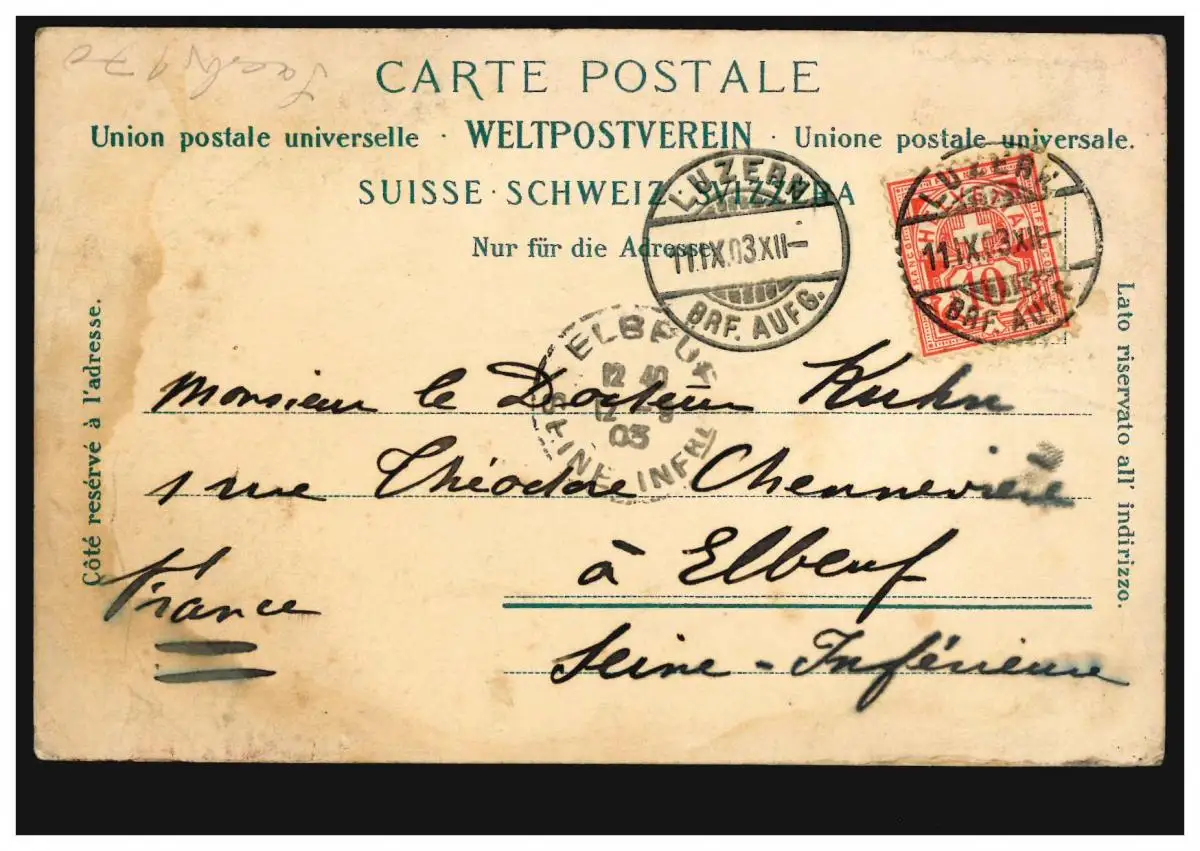 CARTE POSTALE
Union postale universelle · WELTPOSTVEREIN · Unione postale universale.
SUISSE · SCHWEIZ · SVIZZERA
Nur für die Adresse.
LUZERN
11.IX.03.XII–
BRF. AUFG.
LUZERN
11.IX.03.XII–
BRF. AUFG.
FRANCO
HELVETIA
FRANCO
10
ELBEUF
12 40
12 – 9
03
SEINE INFRE
Côté resérvé à l'adresse.
Lato riservato all' indirizzo.
Monsieur le Docteur Kuhn
1 rue Théodore Chennevière
à Elbeuf
France
Seine-Inférieure